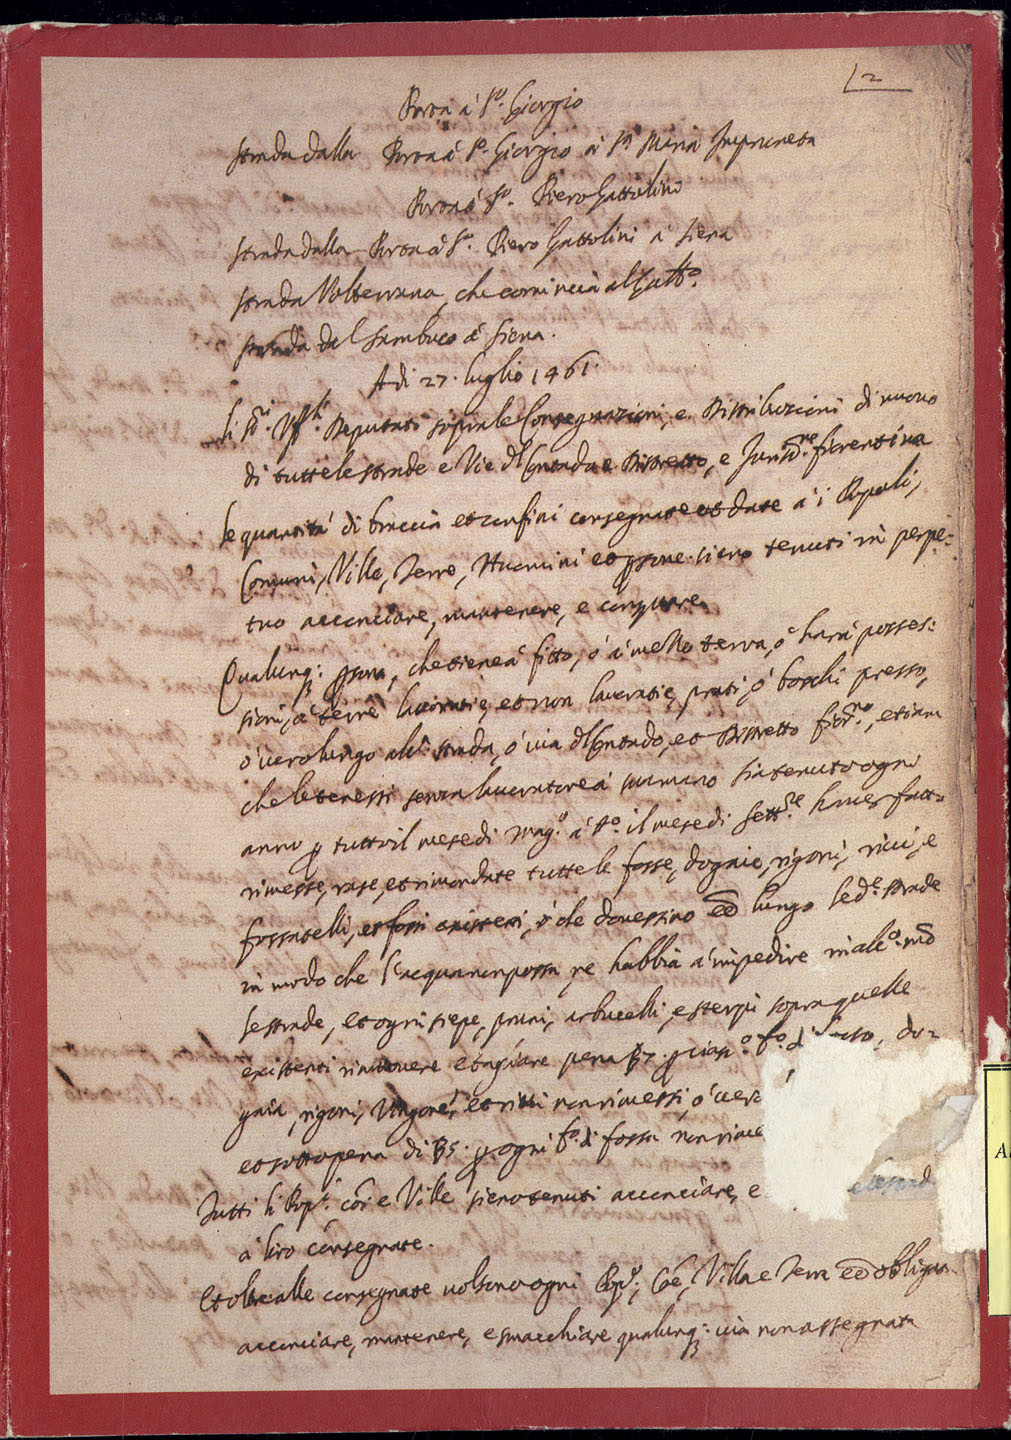 2
Porta à Sº. Giorgio
strada dalla Porta à Sº. Giorgio à Sª Maria Impruneta
Porta à Sº. Piero Gattolino
strada dalla Porta à Sº. Piero Gattolini à Siena
strada Volterrana, che comincia al Gattº.
strada del Sambuco à Siena.
A di 27. luglio 1461.
li Deputati sopra le Consegnazioni, e Distribuzioni di nuovo
di tutte le strade e Vie dl Contado e Distretto, e fiorentina
le quantità di braccia et confini consegnate et date a i Popoli,
Comuni, Ville, Terre, Huomini et psone sieno tenuti in perpe:
tuo acconciare, mantenere, e
Qualunq: psona, che tiene à fitto, ò à mezzo terra, ò harà posses:
sioni, ò terre lavoratie, et non lavoratie, prati, ò boschi presso,
ò vero lungo strada, ò via dl Contado, et Distretto etiam
che le tenessi senza lavoratore à sua mano sia tenuto ogni
anno p tutto il mese di Magº. à il mese di Settre haver fatto
rimesse, rase, et rimondate tutte le fosse, dogaie, rigoni, ricci, e
fossatelli, et fossi existenti, ò che dovessino eē lungo le de. strade
in modo che l'acqua non possa ne habbia à impedire in alcº. mō
le strade, et ogni siepe, pruni, arbucelli, e sterpi sopra quelle
existenti rimuovere e tagliare pena do-
gaia, rigoni, et non rimessi, ò vero
et sotto pena di p ogni fº. di fossa non
Tutti li Popi. cōi e Ville sieno tenuti acconciare, e
à loro consegnate.
Et oltre alle consegnate vogliono ogni Popº, Cōe, Villa e Terra eē obligata
acconciare, mantenere, e smacchiare qualunq: via non assegnata